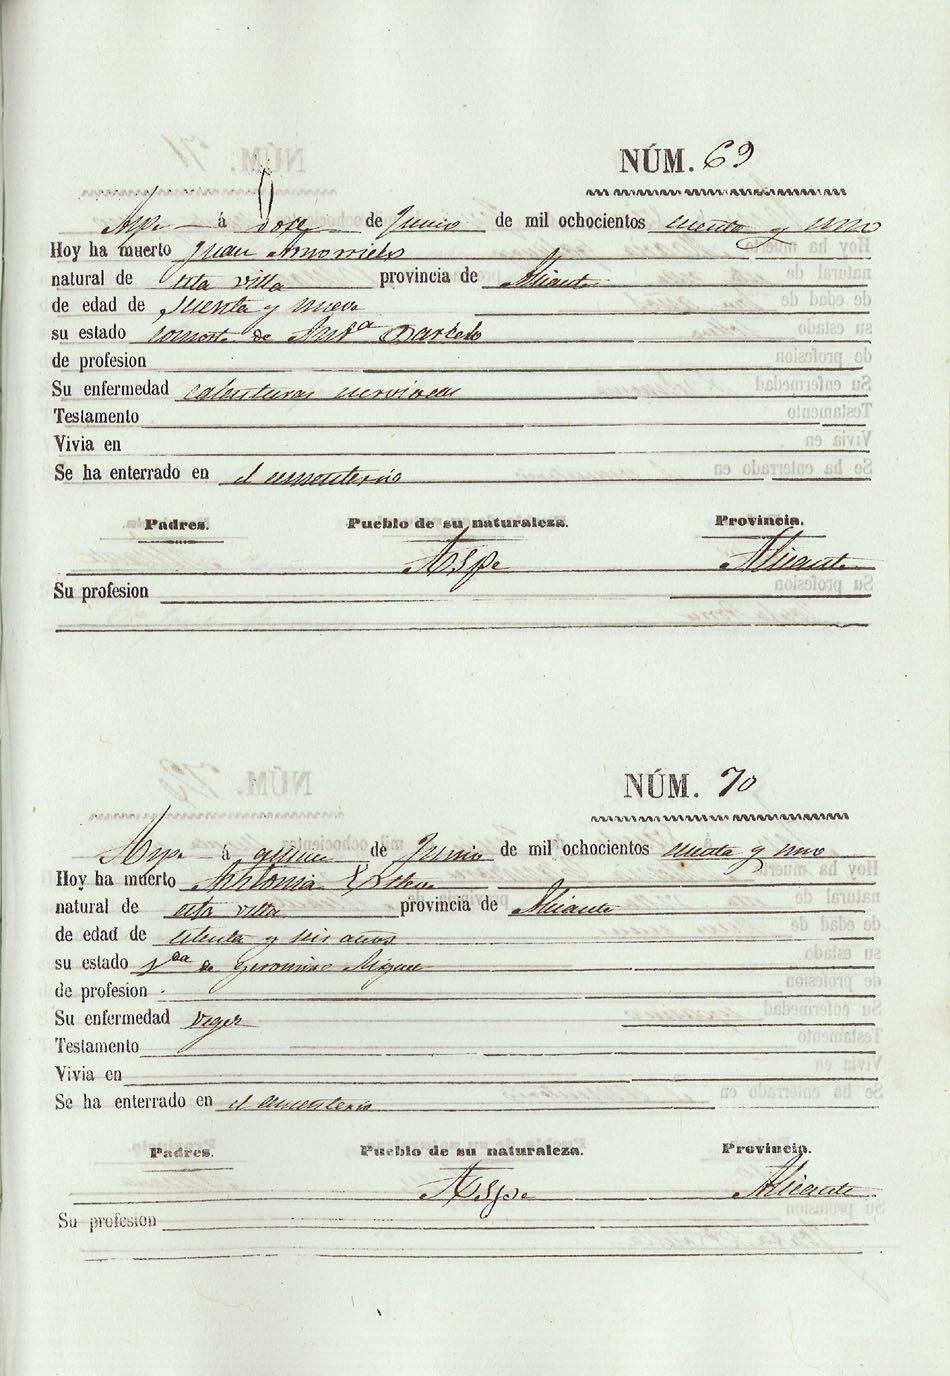 NÚM. 69
Aspe á Doze de Junio de mil ochocientos y uno
Hoy ha muerto Juan
natural de esta villa provincia de Alicante
de edad de y nueve
su estado consorte de Antª
de profesion
Su enfermedad calenturas nerviosas
Testamento
Vivia en
Se ha enterrado en el cementerio
Padres. Pueblo de su naturaleza. Provincia.
Aspe Alicante
Su profesion
NÚM. 70
Aspe á quince de Junio de mil ochocientos y uno
Hoy ha muerto Antonia
natural de esta villa provincia de Alicante
de edad de y seis años
su estado Vda de Geronimo
de profesion
Su enfermedad vegez
Testamento
Vivia en
Se ha enterrado en el cementerio
Padres. Pueblo de su naturaleza. Provincia.
Aspe Alicante
Su profesion